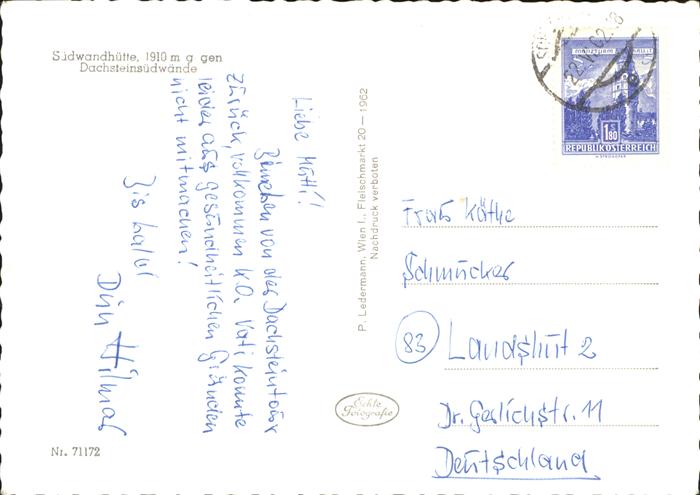 Südwandhütte, 1910 m g gen
Dachsteinsüdwände
Liebe Mutti!
von der Dachsteintour
zurück, vollkommen k.o. Vati konnte
leider aus gesundheitlichen Gründen
nicht mitmachen!
Bis bald!
Dein Hilmar
Nr. 71172
P. Ledermann, Wien I., Fleischmarkt 20 — 1962
Nachdruck verboten
Echte
Fotografie
22.V 62-18
MÜNZTURM HALL I.T.
1.80
REPUBLIK ÖSTERREICH
Frau Käthe
Schmucker
83 Landshut 2
Dr. Gerlichstr. 11
Deutschland